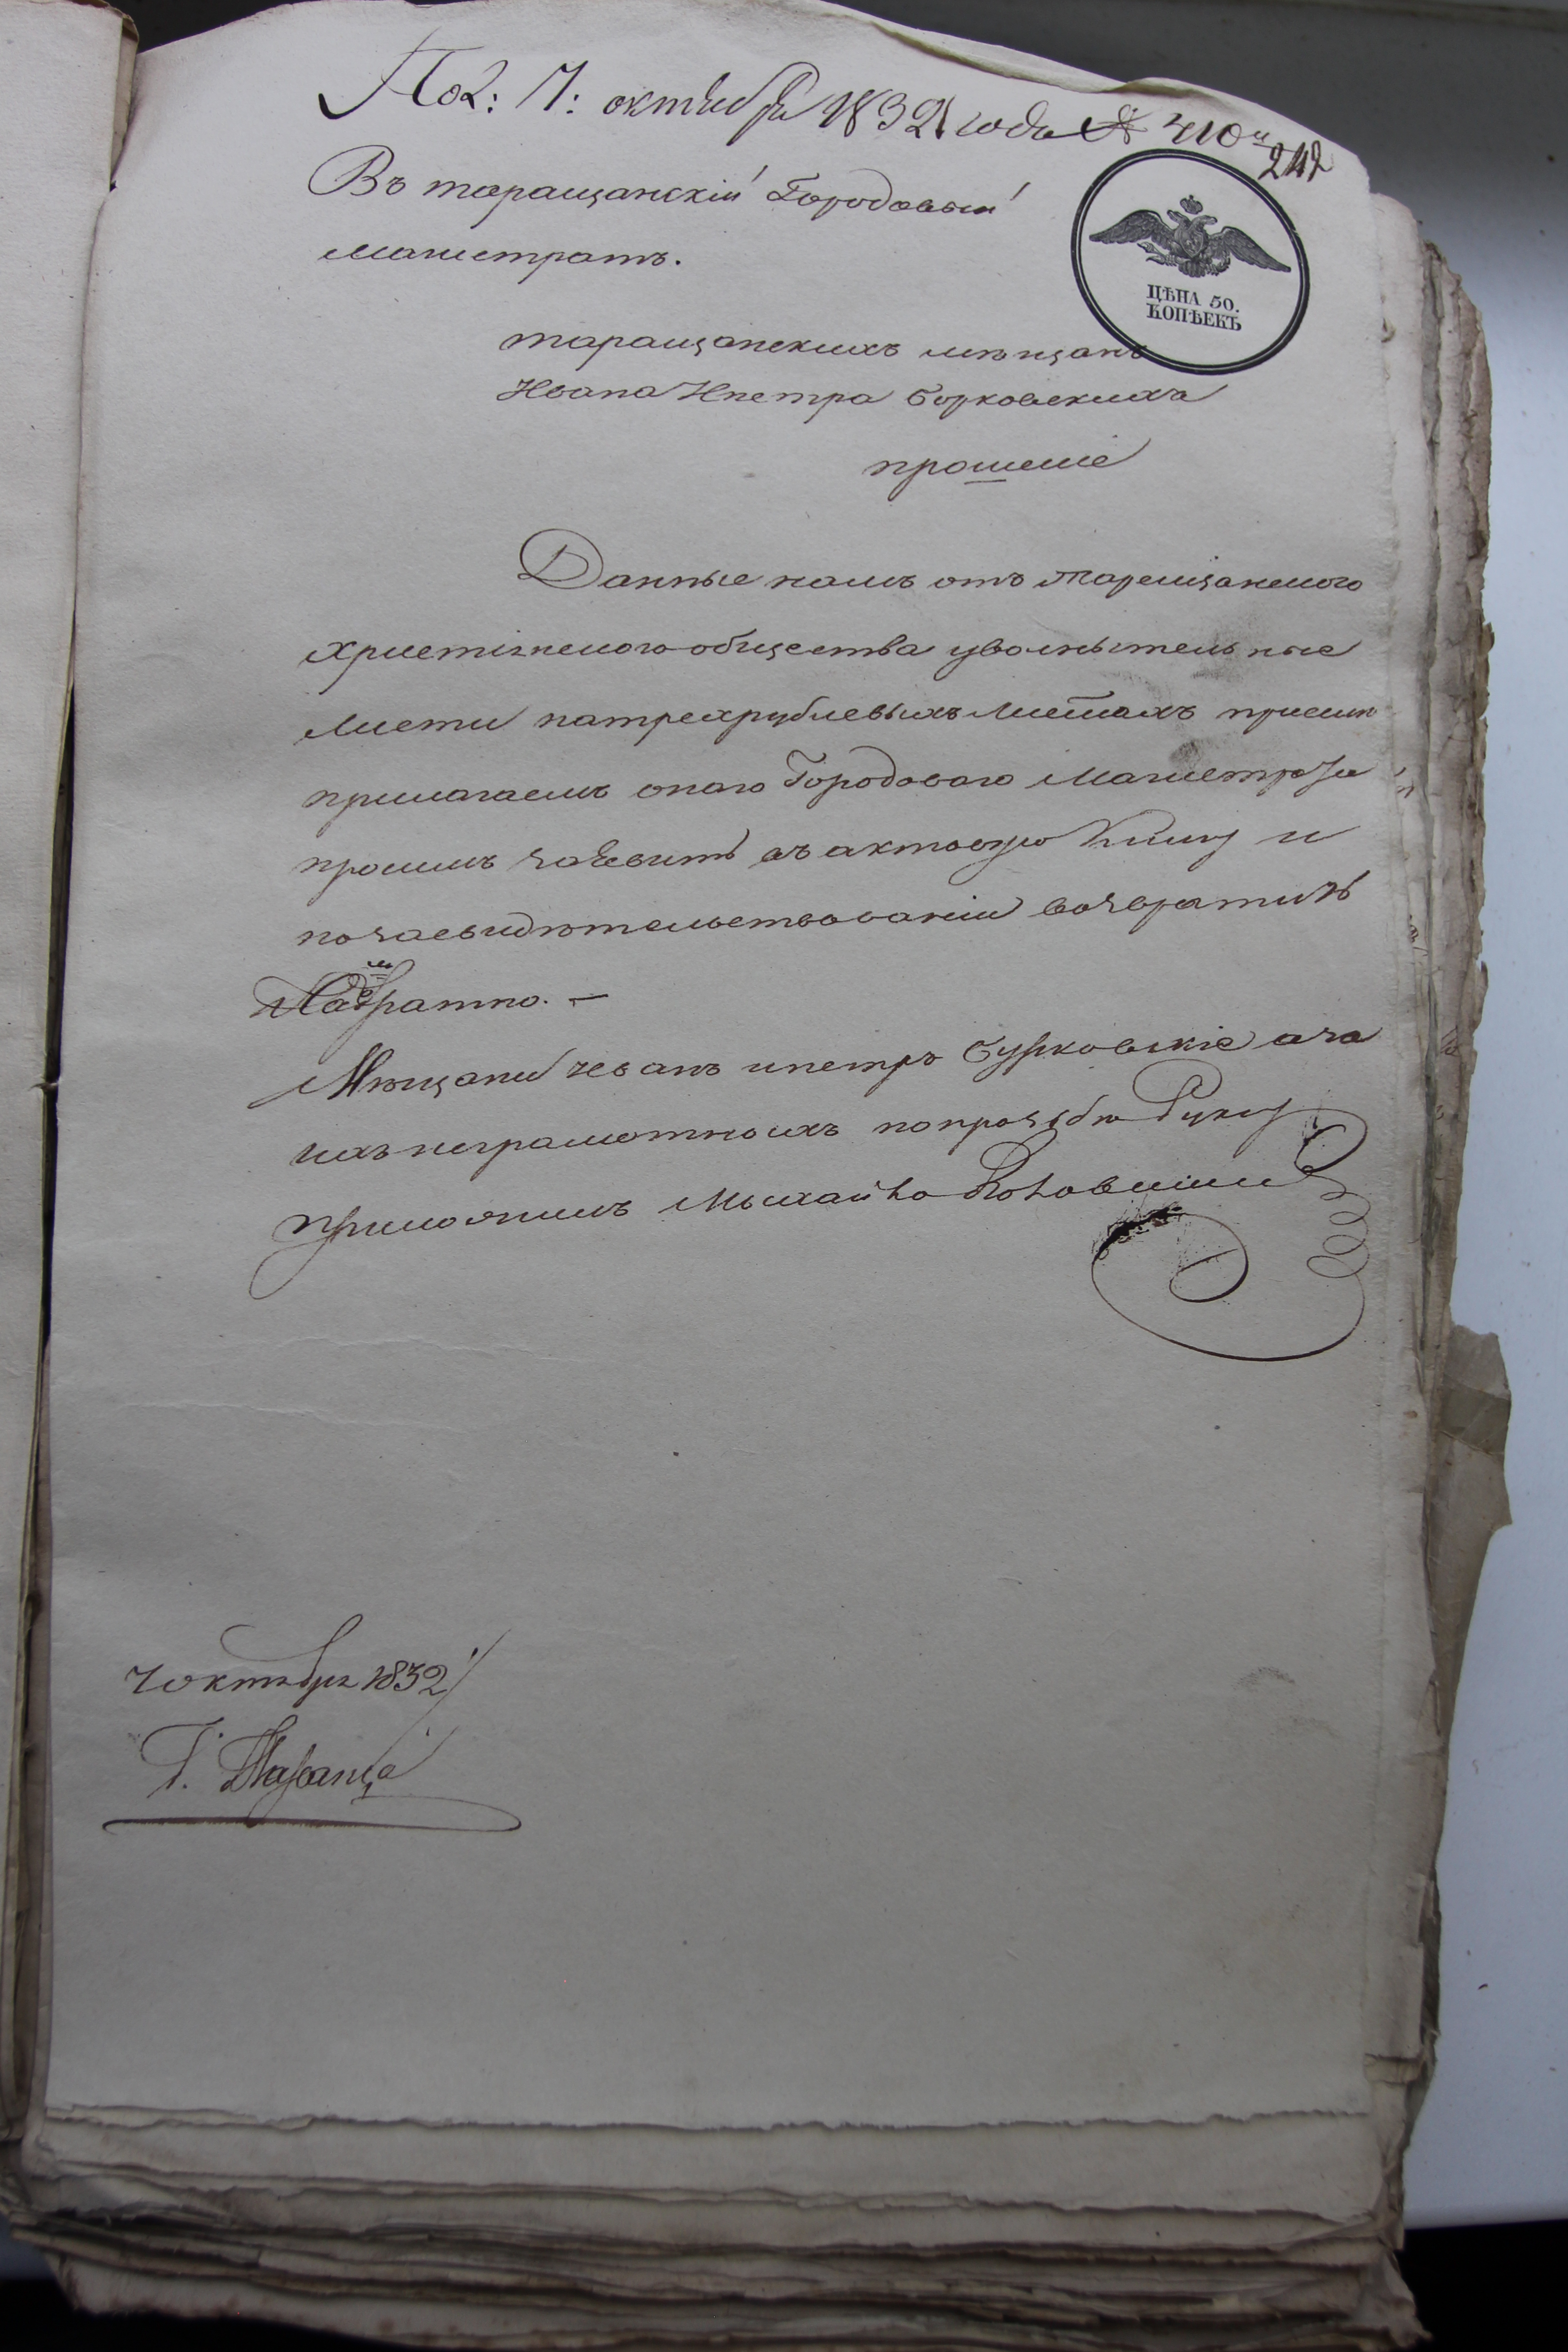 Пол: 7: октября 1832 года № 410й
242
Въ таращанскій Городовый
магистратъ.
ЦѢНА 50.
КОПѢЕКЪ
таращанскихъ мѣщанъ
Ивана Ипетра Бурковскихъ
прошеніе
Данные намъ отъ таращанского
християнского общества уволнытельные
листи натрехрублевыхъ листахъ присемъ
прилагаемъ оного Городового Магистрата
просимъ заявить въ актовую Книгу и
позасвидѣтельствованіи возвратить
Намъ обратно. —
Мѣщани Иванъ ипетръ Бурковскіе аза
ихъ неграмотныхъ попрозбѣ Руку
приложилъ Мыхайло
7 октября 1832
Г. Тараща